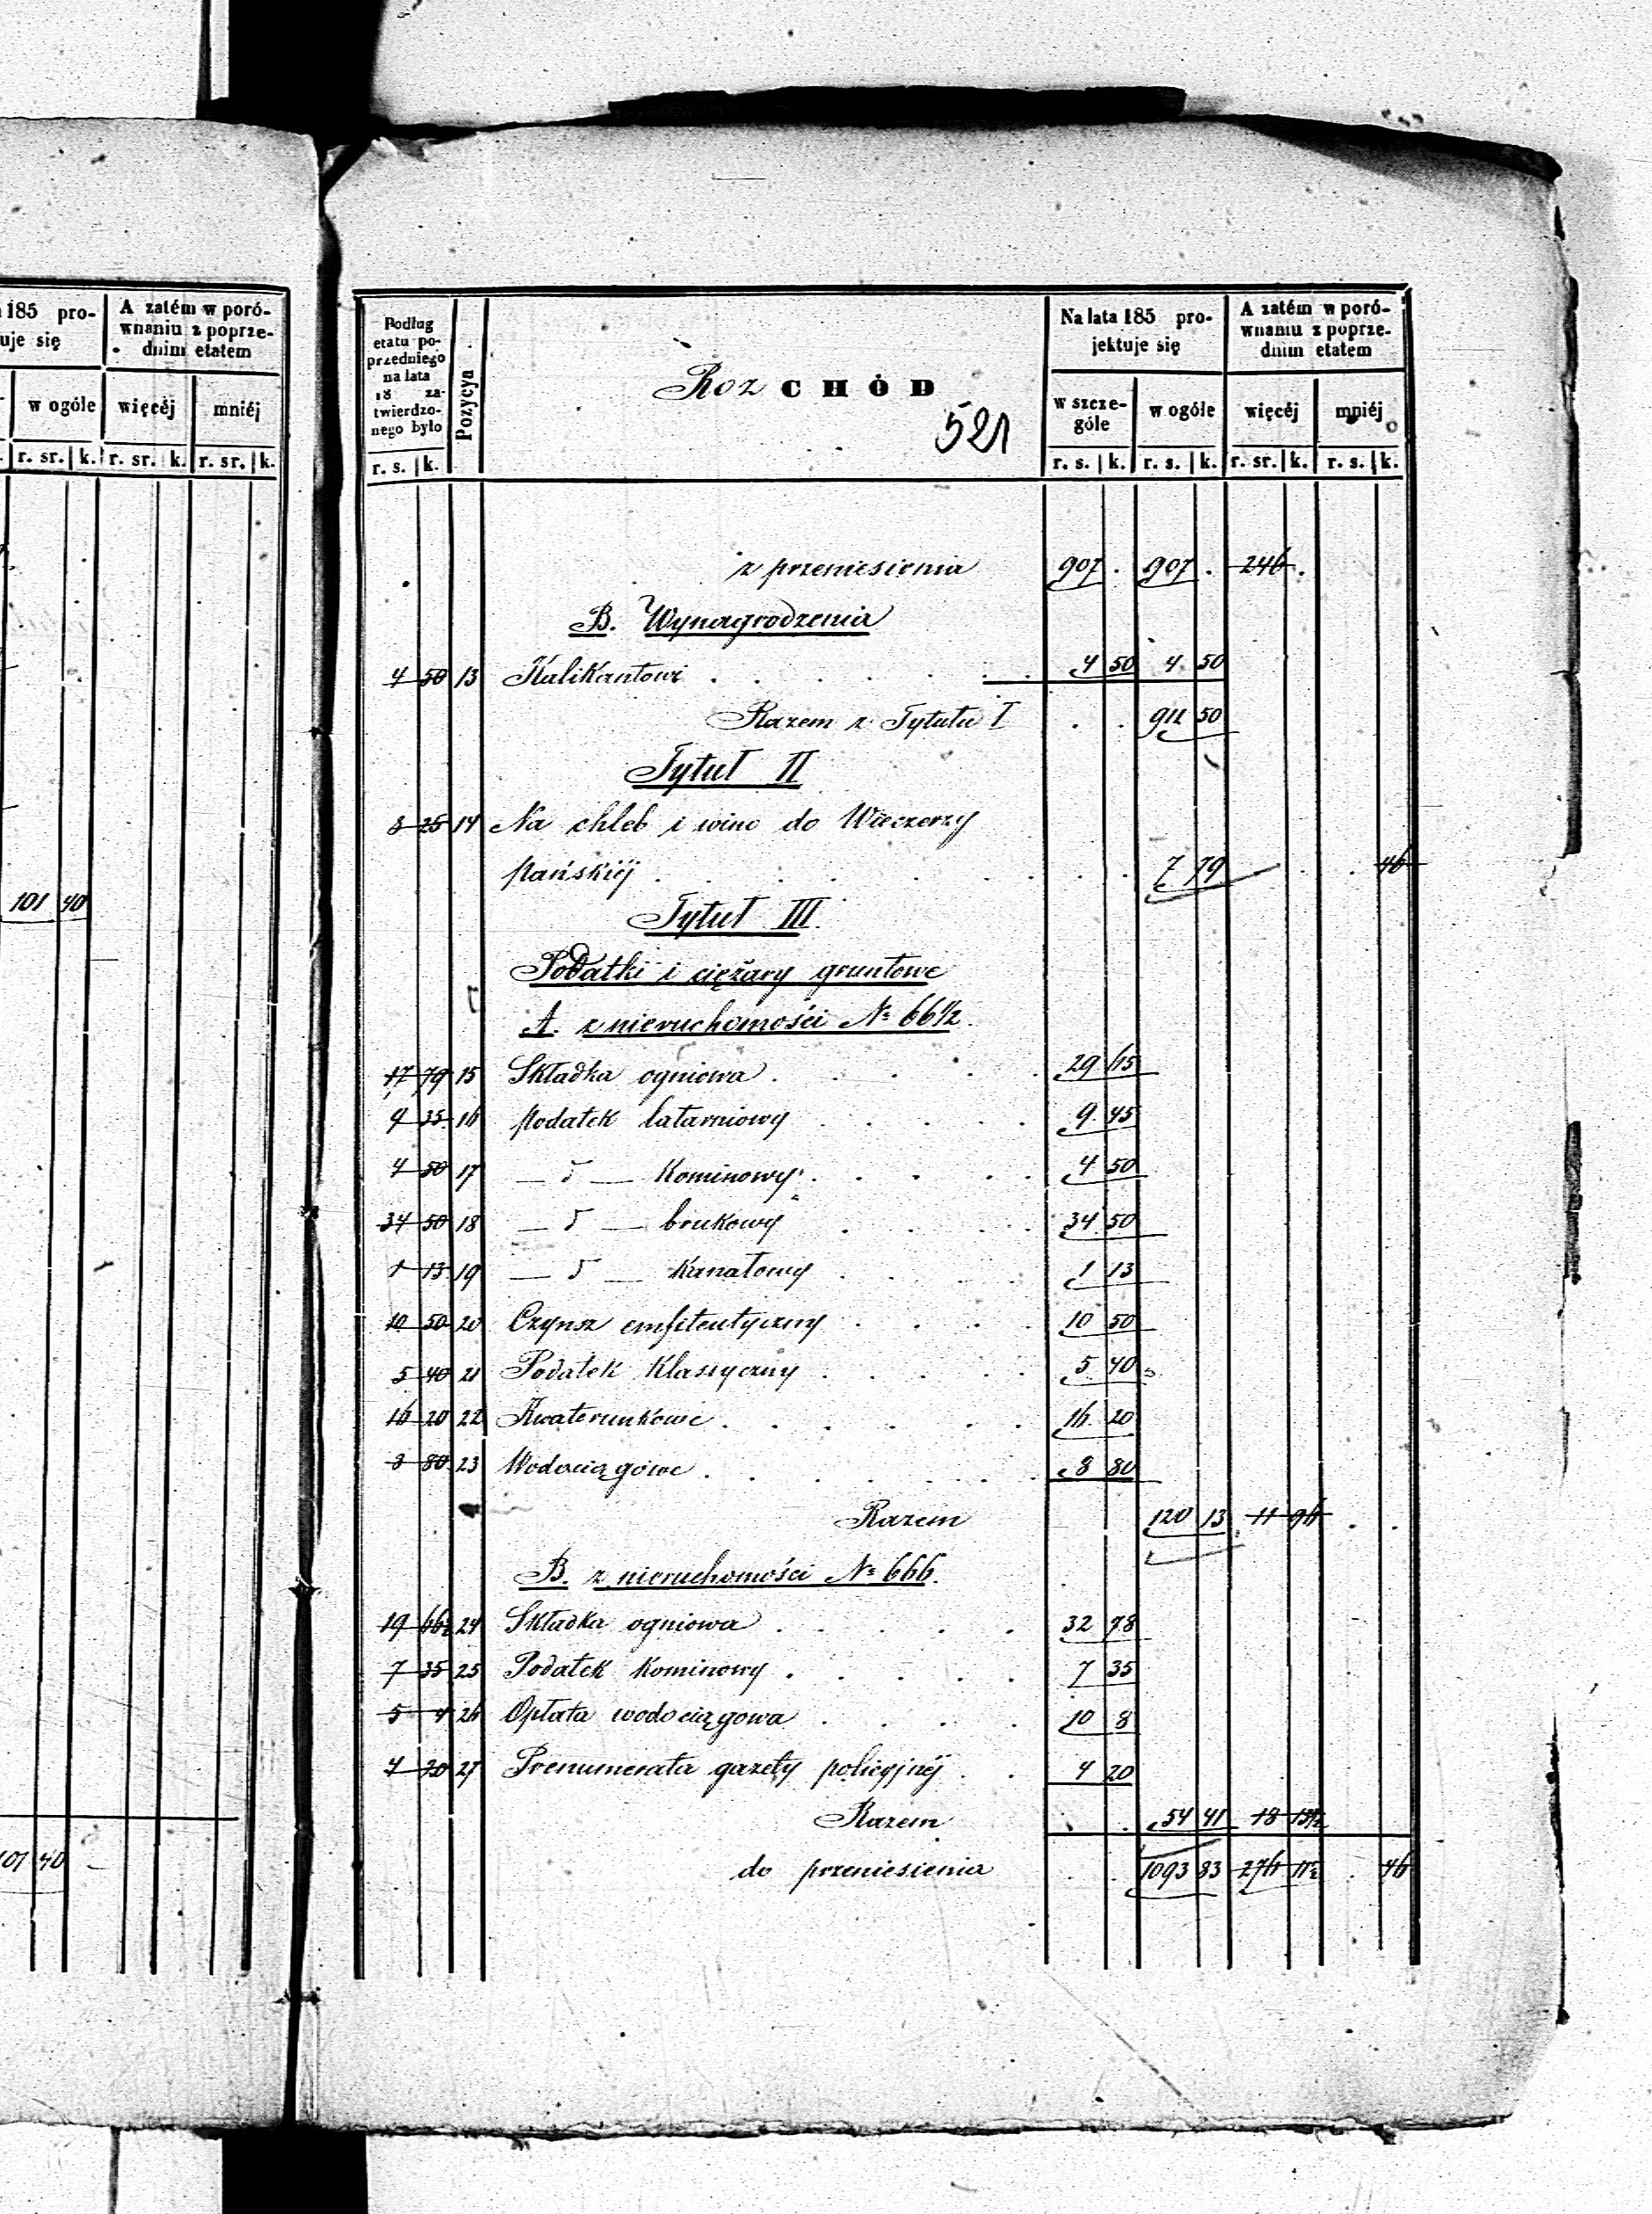 185 pro-
uje się
A zatém w poró-
wnaniu z poprze-
dnim etatem
w ogóle
więcéj
mniéj
r. sr. k. r. sr. k. r. sr. k.
101 40
101 40 —
Podług
etatu po-
przedniego
na lata
18 za-
twierdzo-
nego było
r. s. k.
Pozycya
Roz CHÓD
521
Na lata 185 pro-
jektuje się
w szcze-
góle
w ogóle
r. s. k. r. s. k.
A zatém w poró-
wnaniu z poprze-
dnim etatem
więcéj
mniéj
r. sr. k. r. s. k.
z przeniesienia 907 . 907 . 246 .
B. Wynagrodzenia
4 50 13 Kalikantowi . . . . . . 4 50 4 50
Razem z Tytułu I . . 911 50
Tytuł II
8 25 14 Na chleb i wino do Wieczerzy
Pańskiéj . . . . . . 7 79 . . . 46
Tytuł III.
Podatki i ciężary gruntowe
A. z nieruchomości № 66½.
17 79 15 Składka ogniowa . . . . . 29 65
9 35 16 Podatek latarniowy . . . . . 9 45
4 50 17 — d — Kominowy . . . . . 4 50
34 50 18 — d — brukowy . . . . 34 50
1 13 19 — d — Kanałowy . . . . 1 13
10 50 20 Czynsz emfiteutyczny . . . . 10 50
5 40 21 Podatek Klasyczny . . . . . 5 40
16 20 22 Kwaterunkowe . . . . . . 16 20
8 80 23 Wodociągowe . . . . . . 8 80
Razem 120 13 11 96 . .
B. z nieruchomości № 666.
19 66½ 24 Składka ogniowa . . . . . 32 78
7 35 25 Podatek Kominowy . . . . . 7 35
5 4 26 Opłata wodociągowa . . . . 10 8
4 20 27 Prenumerata gazety policyjnéj . . 4 20
Razem . . 54 41 18 15½
do przeniesienia . . 1093 83 276 11½ . 46